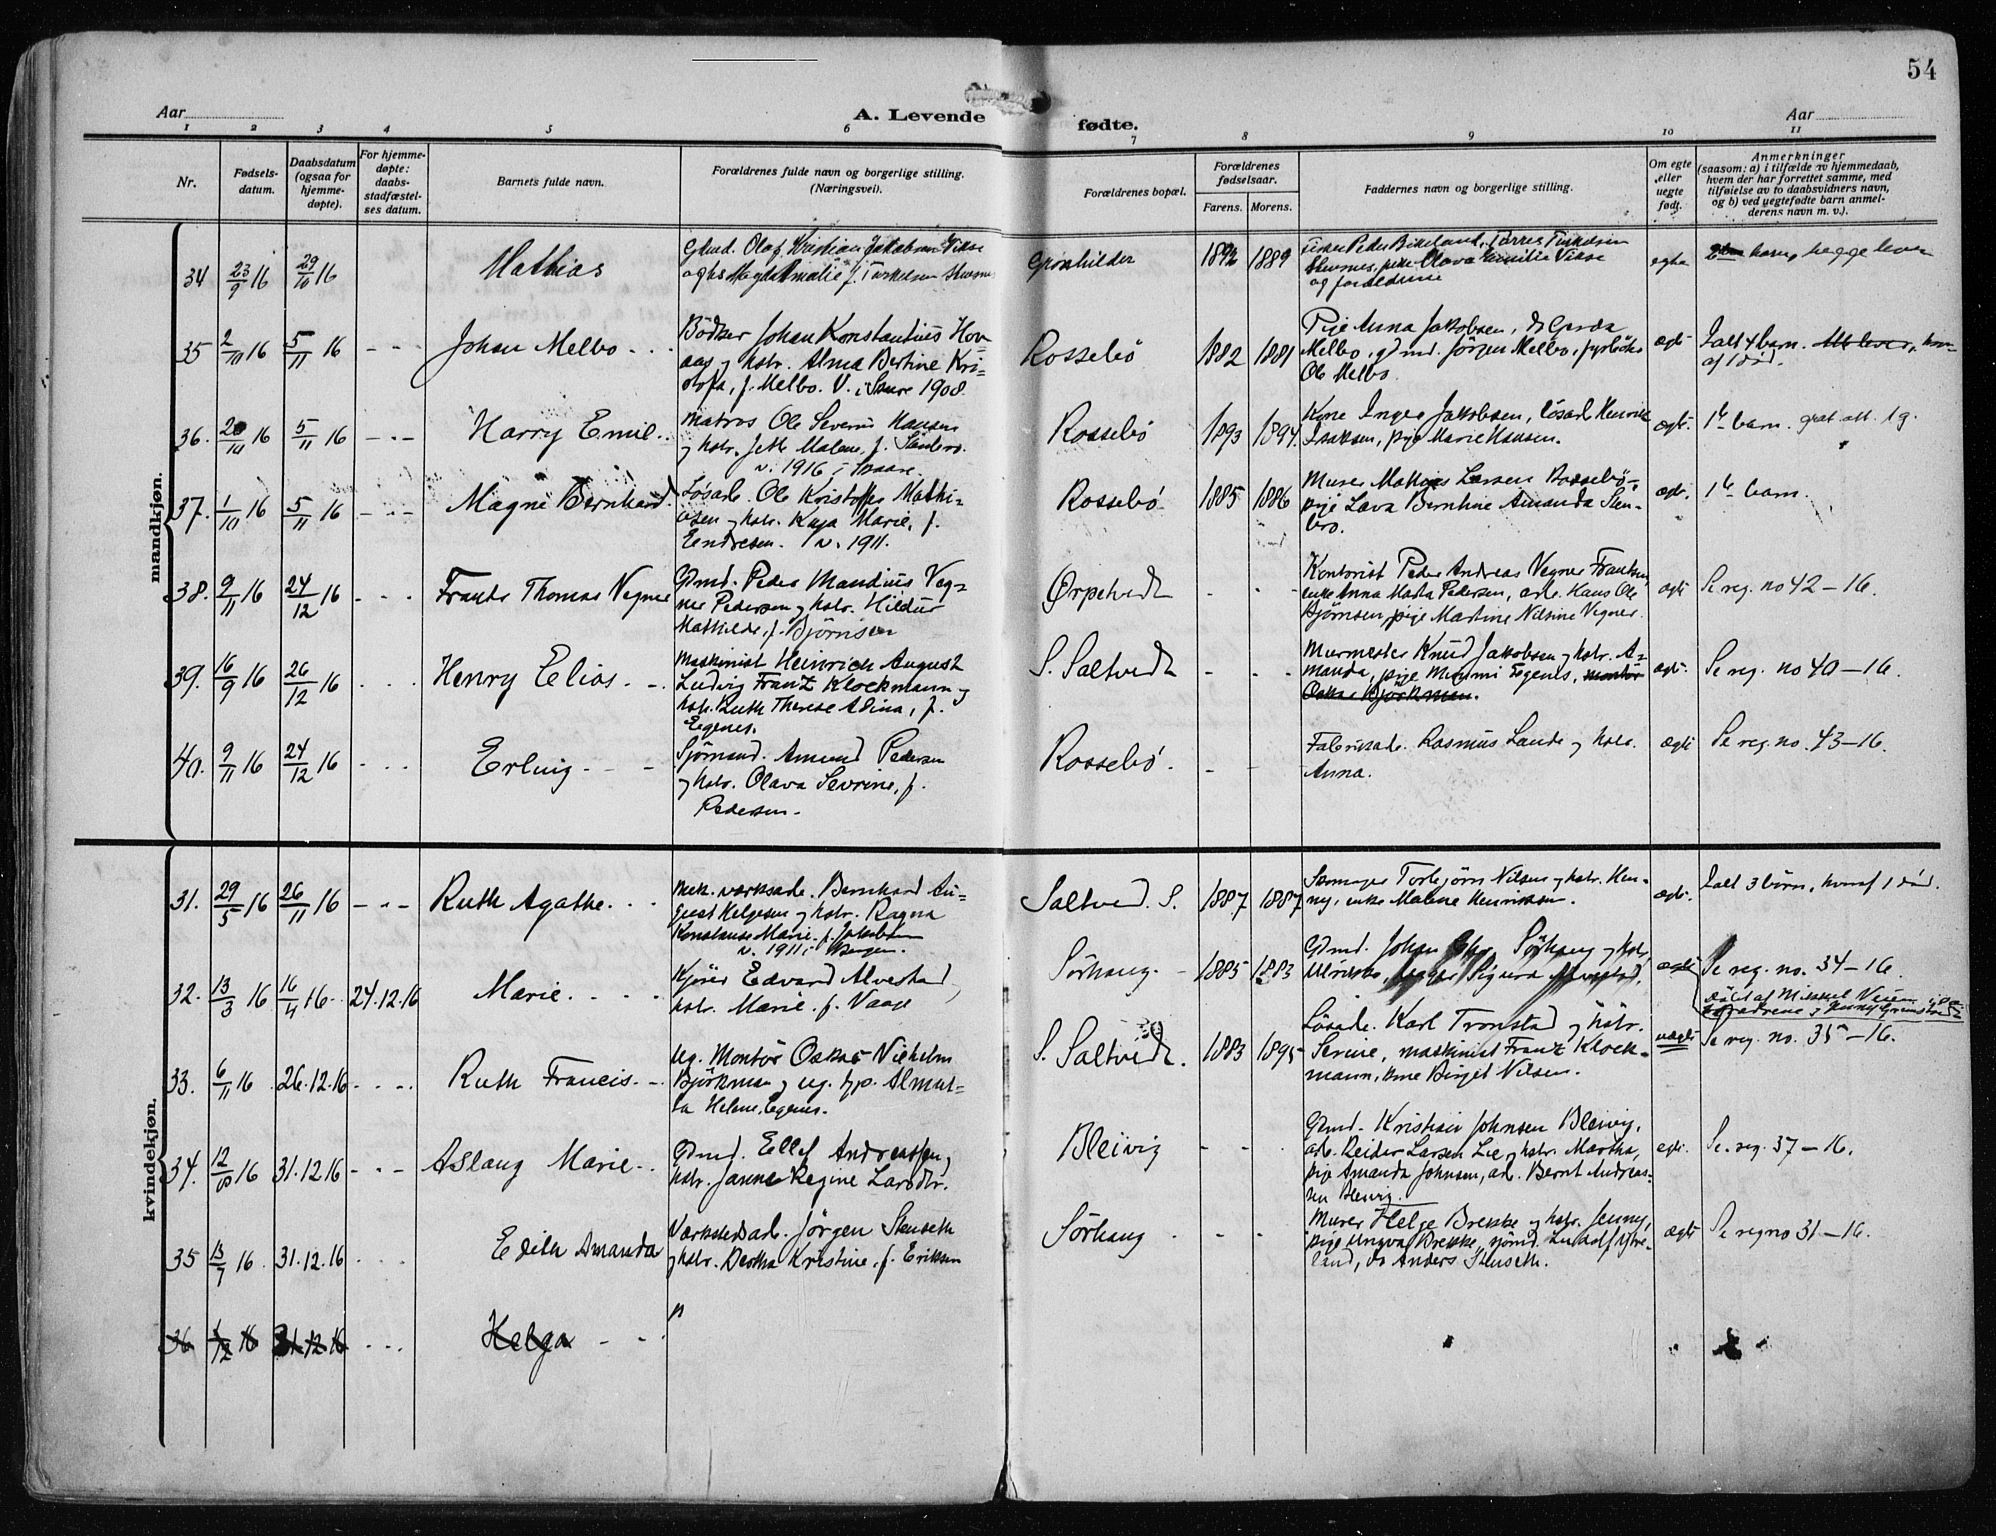 54
Aar
A. Levende fødte.
Aar
1 2 3 4 5 6 7 8 9 10 11
Nr.
Fødsels-
datum.
Daabsdatum
(ogsaa for
hjemme-
døpte).
For hjemme-
døpte:
daabs-
stadfæstel-
ses datum.
Barnets fulde navn.
Forældrenes fulde navn og borgerlige stilling.
(Næringsvei).
Forældrenes bopæl.
Forældrenes
fødselsaar.
Farens. Morens.
Faddernes navn og borgerlige stilling.
Om egte
eller
uegte
født.
Anmerkninger
(saasom: a) i tilfælde av hjemmedaab,
hvem der har forrettet samme, med
tilføielse av to daabsvidners navn,
og b) ved uegtefødte barn anmel-
derens navn m. v.).
mandkjøn.
34 23/9 16 29/10 16
Mathias
Gmd. Olaf Kristian Jakobsen Vikse
Grønhilder
1892 1889
og forældrene
egte
barn, begge lever
35 2/10 16 5/11 16 - - -
Johan Melbo
Bödker Johan Konstantius Hov-
aag og hstr. Alma Bertine Kri-
stofa, f. Melbo. V. i Skaare 1908.
Rossebö
1882 1881
Pige Anna Jakobsen, do Gerda
Melbo, gdmd. Jörgen Melbo, fyrböter
Ole Melbo.
ægte
Ialt 4 barn.
af 1 död.
36. 20/10 16 5/11 16 - - -
Harry Emil
Matros Ole Severin Hansen
og hstr. Jette Malene, f.
v. 1916 i Skaare.
Rossebö
1893 1894.
Kone Inger Jakobsen, lösarb. Henrik
Isaksen, pige Marie Hansen.
ægte.
1ste barn.
37. 1/10 16 5/11 16 - - -
Magne Bernhard
Lösarb. Ole Kristoffer Mathi-
asen og hstr. Kaja Marie, f.
Eendresen. v. 1911.
Rossebö
1885 1886
Murer Mathias Larsen Rossebö,
pige Lava Bernhine Amanda Sten-
bro.
ægte.
1ste barn.
38. 9/11 16 24/12 16 - - -
Frants Thomas Vegner
Gdmd. Peder Mandius Veg-
ner Pedersen og hstr. Hildur
Mathilde, f. Björnsen
Ørpetvedt
- - -
Kontorist Peder Andreas Vegner Frantsen,
enke Anna Marta Pedersen, arb. Hans Ole
Björnsen, pige Martine Nilsine Vegner.
ægte
Se reg. no 42 - 16.
39. 16/9 16 26/12 16 - - -
Henry Elias
Maskinist Heinrich August
Ludvig Franz Klockmann og
hstr. Ruth Therese Adina, f.
Egenes.
S. Saltvedt
- - -
Murmester Knud Jakobsen og hstr. A-
manda, pige Mimmi Egenes, montör
Oskar Björkman.
ægte.
Se reg. no 40 - 16.
40. 9/11 16 24/12 16 - - -
Erling
Sjömand. Amund Pedersen
og hstr. Olava Sevrine, f.
Pedersen.
Rossebö.
- -
Fabriksarb. Rasmus Lande og hstr.
Anna.
ægte
Se reg. no. 43 - 16.
kvindekjøn.
31. 29/5 16 26/11 16 - - -
Ruth Agathe
Mek. værksarb. Bernhard Au-
gust Helgesen og hstr. Ragna
Konstanse Marie f. Jakobsen
v. 1911 i Bergen.
Saltved. S.
1887 1887
Torbjörn Nilsen og hstr. Hen-
ny, enke Malene Henriksen.
ægte.
Ialt 3 börn, hvoraf 1 död.
32. 13/3 16 16/4 16 24.12.16
Marie
Kjörer Edvard Alvestad,
hstr. Marie f. Vaage
Sörhaug.
1885 1883
Gdmd. Johan Sörhaug og hstr.
ægte
Se reg. no. 34 - 16.
33. 6/11 16 26.12.16 - - -
Ruth Francis
Ug. Montör Oskar Vilhelm
Björkman og ug. Almar-
ta Helene Egenes.
S. Saltvedt.
1883 1895
Lösarb. Karl Tronstad og hstr.
Serine, maskinist Franz Klock-
mann, kone Birgit Nilsen.
uægte
Se reg. no. 35 - 16.
34. 12/8 16 31.12.16 - - -
Aslaug Marie
Gdmd. Ellef Andreassen,
hstr. Janna Regine Larsdtr.
Bleivig
- - -
Gdmd. Kristian Johnsen Bleivig,
arb. Reidar Larsen Lie og hstr. Martha,
pige Amanda Johnsen, arb. Bernt Andreas-
sen Bleivig.
egte.
Se reg. 37 - 16.
35 13/7 16 31.12.16
Edith Amanda
Værkstedarb. Jörgen Stenseth
og hstr. Bertha Kristine, f. Eriksen
Sörhaug
- - -
Murer Helge Brekke og hstr. Jenny,
pige Yngva Brekke, sjömd. Ludolf
land, do Anders Stenseth.
ægte
Se reg no 31 - 16.
36 1/12 16 31.12.16 - - -
Helga
"